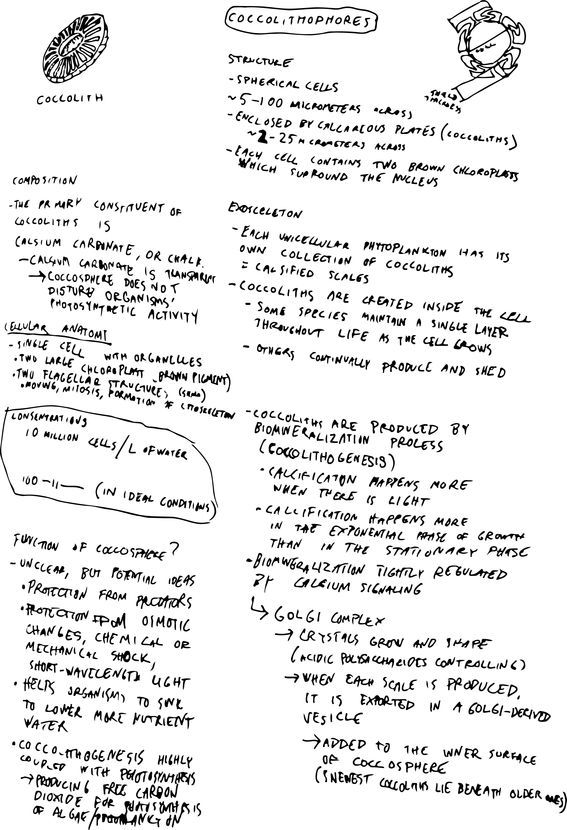 COCCOLITHOPHORES
COCCOLITH
STRUCTURE
- SPHERICAL CELLS
~5-100 MICROMETERS ACROSS
- ENCLOSED BY CALCAREOUS PLATES (COCCOLITHS)
~2-25 MICROMETERS ACROSS
- EACH CELL CONTAINS TWO BROWN CHLOROPLASTS
WHICH SURROUND THE NUCLEUS
COMPOSITION
- THE PRIMARY CONSTITUENT OF
COCCOLITHS IS
CALSIUM CARBONATE, OR CHALK.
- CALSIUM CARBONATE IS TRANSPARENT
→ COCCOSPHERE DOES NOT
DISTURB ORGANISMS'
PHOTOSYNTHETIC ACTIVITY
CELLULAR ANATOMY
- SINGLE CELL WITH ORGANELLES
• TWO LARGE CHLOROPLAST (BROWN PIGMENT)
• TWO FLAGELLAR STRUCTURES
• MOVING, MITOSIS, FORMATION OF CYTOSKELETON
CONSENTRATIONS
10 MILLION CELLS/L OF WATER
100 -11- (IN IDEAL CONDITIONS)
FUNCTION OF COCCOSPHERE?
- UNCLEAR, BUT POTENTIAL IDEAS
• PROTECTION FROM PREDATORS
• PROTECTION FROM OSMOTIC
CHANGES, CHEMICAL OR
MECHANICAL SHOCK,
SHORT-WAVELENGTH LIGHT
• HELPS ORGANISMS TO SINK
TO LOWER MORE NUTRIENT
WATER
• COCCOLITHOGENESIS HIGHLY
COUPLED WITH PHOTOSYNTHESIS
→ PRODUCING FREE CARBON
DIOXIDE FOR PHOTOSYNTHESIS
OF ALGAE/PLANKTON
EXOSCELETON
- EACH UNICELLULAR PHYTOPLANKTON HAS ITS
OWN COLLECTION OF COCCOLITHS
= CALSIFIED SCALES
- COCCOLITHS ARE CREATED INSIDE THE CELL
- SOME SPECIES MAINTAIN A SINGLE LAYER
THROUGHOUT LIFE AS THE CELL GROWS
- OTHERS CONTINUALLY PRODUCE AND SHED
- COCCOLITHS ARE PRODUCED BY
BIOMINERALIZATION PROCESS
(COCCOLITHOGENESIS)
• CALCIFICATION HAPPENS MORE
WHEN THERE IS LIGHT
• CALCIFICATION HAPPENS MORE
IN THE EXPONENTIAL PHASE OF GROWTH
THAN IN THE STATIONARY PHASE
• BIOMINERALIZATION TIGHTLY REGULATED
BY CALCIUM SIGNALING
↳ GOLGI COMPLEX
→ CRYSTALS GROW AND SHAPE
(ACIDIC POLYSACCHARIDES CONTROLLING)
→ WHEN EACH SCALE IS PRODUCED,
IT IS EXPORTED IN A GOLGI-DERIVED
VESICLE
→ ADDED TO THE INNER SURFACE
OF COCCOSPHERE
(NEWEST COCCOLITHS LIE BENEATH OLDER ONES)